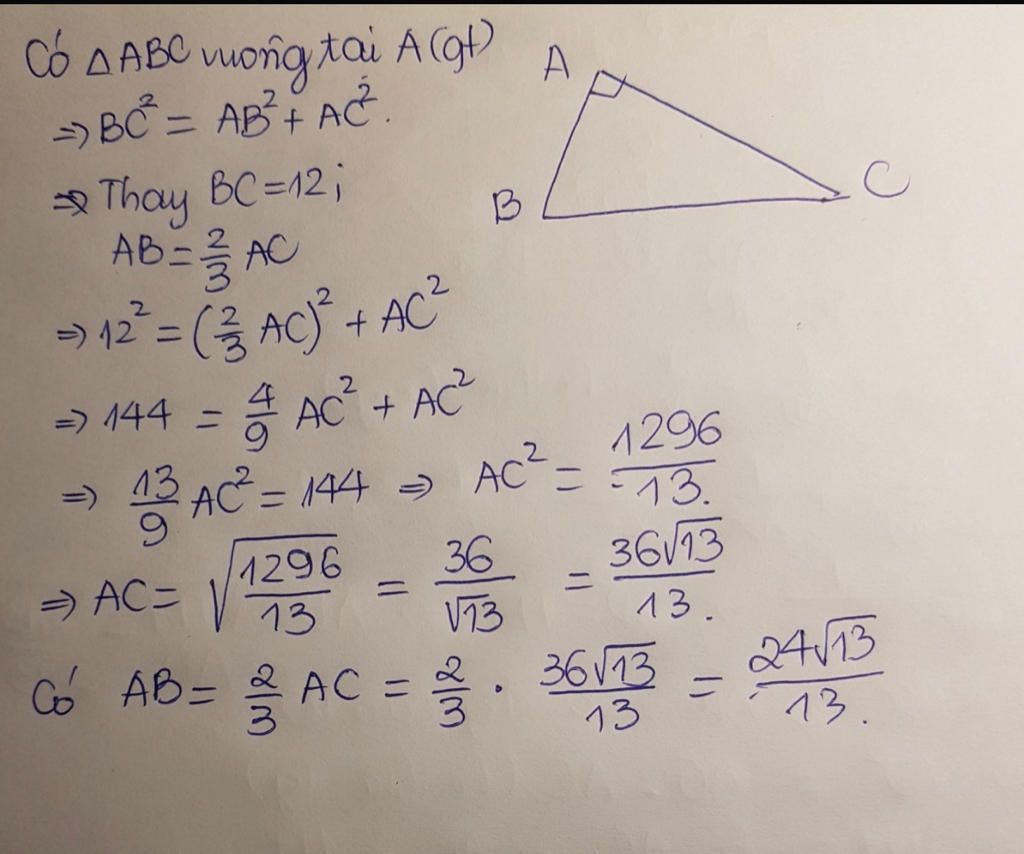 Có △ABC vuông tại A (gt)
⇒ BC² = AB² + AC².
⇒ Thay BC = 12;
AB = 2/3 AC
⇒ 12² = (2/3 AC)² + AC²
⇒ 144 = 4/9 AC² + AC²
⇒ 13/9 AC² = 144 ⇒ AC² = 1296/13.
⇒ AC = √(1296/13) = 36/√13 = 36√13/13.
Có AB = 2/3 AC = 2/3 . 36√13/13 = 24√13/13.
A
B
C